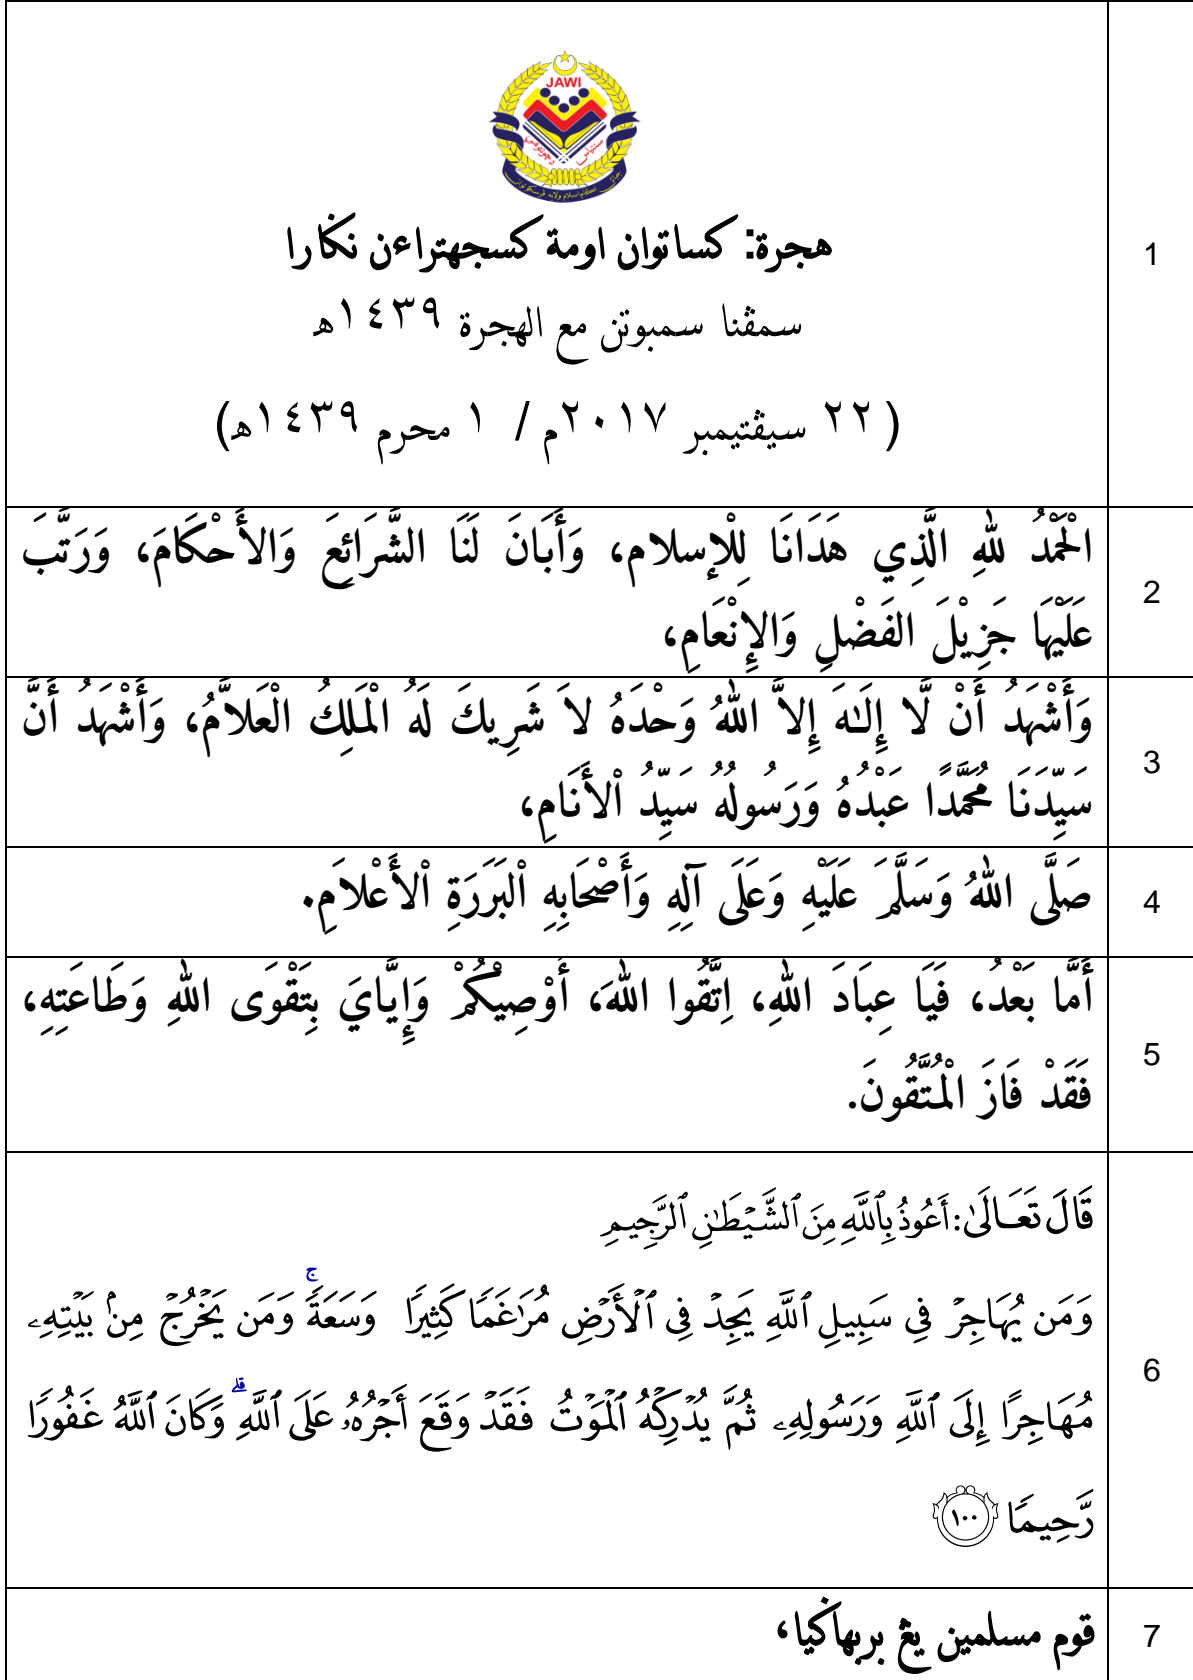 JAWI
هجرة: كساتوان اومة كسجهتراءن نݢارا
سمڤنا سمبوتن مع الهجرة ١٤٣٩ه
(٢٢ سيڤتيمبر ٢٠١٧م / ١ محرم ١٤٣٩ه)
1
الْحَمْدُ للهِ الَّذِي هَدَانَا لِلْإسلام، وَأَبَانَ لَنَا الشَّرَائِعَ وَالأَحْكَامَ، وَرَتَّبَ
عَلَيْهَا جَزِيْلَ الفَضْلِ وَالإِنْعَامِ،
2
وَأَشْهَدُ أَنْ لَّا إِلَـٰهَ إِلاَّ اللهُ وَحْدَهُ لاَ شَرِيكَ لَهُ الْمَلِكُ الْعَلاَّمُ، وَأَشْهَدُ أَنَّ
سَيِّدَنَا مُحَمَّدًا عَبْدُهُ وَرَسُولُهُ سَيِّدُ اْلأَنَامِ،
3
صَلَّى اللهُ وَسَلَّمَ عَلَيْهِ وَعَلَى آلِهِ وَأَصْحَابِهِ اْلبَرَرَةِ اْلأَعْلاَمِ.
4
أَمَّا بَعْدُ، فَيَا عِبَادَ اللهِ، اِتَّقُوا اللهَ، أُوْصِيْكُمْ وَإِيَّايَ بِتَقْوَى اللهِ وَطَاعَتِهِ،
فَقَدْ فَازَ الْمُتَّقُونَ.
5
قَالَ تَعَالَىٰ: أَعُوذُ بِٱللَّهِ مِنَ ٱلشَّيْطَٰنِ ٱلرَّجِيمِ
وَمَن يُهَاجِرْ فِى سَبِيلِ ٱللَّهِ يَجِدْ فِى ٱلْأَرْضِ مُرَٰغَمًا كَثِيرًا وَسَعَةً ۚ وَمَن يَخْرُجْ مِنۢ بَيْتِهِۦ
مُهَاجِرًا إِلَى ٱللَّهِ وَرَسُولِهِۦ ثُمَّ يُدْرِكْهُ ٱلْمَوْتُ فَقَدْ وَقَعَ أَجْرُهُۥ عَلَى ٱللَّهِ ۗ وَكَانَ ٱللَّهُ غَفُورًا
رَّحِيمًا ١٠٠
6
قوم مسلمين يڠ بربهاݢيا،
7